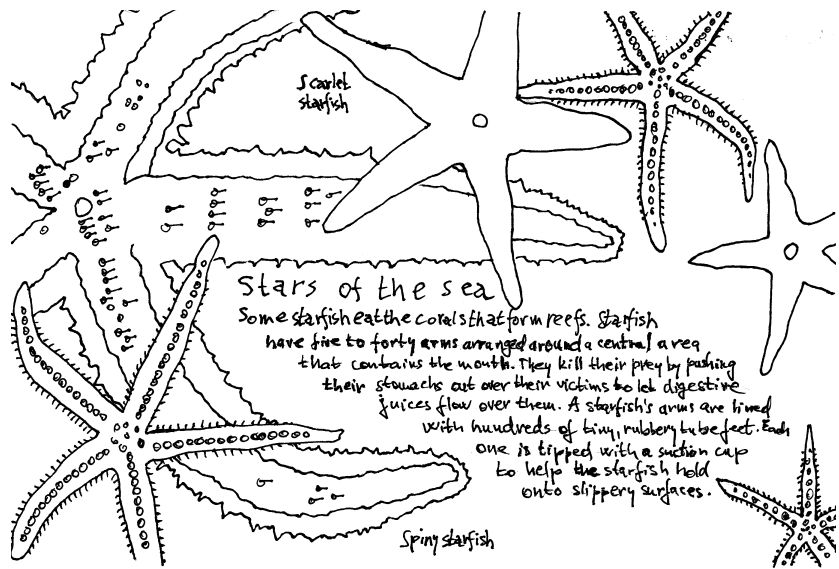 Scarlet
starfish
Stars of the sea
Some starfish eat the corals that form reefs. Starfish
have five to forty arms arranged around a central area
that contains the mouth. They kill their prey by pushing
their stomachs out over their victims to let digestive
juices flow over them. A starfish's arms are lined
with hundreds of tiny, rubbery tube feet. Each
one is tipped with a suction cup
to help the starfish hold
onto slippery surfaces.
Spiny starfish